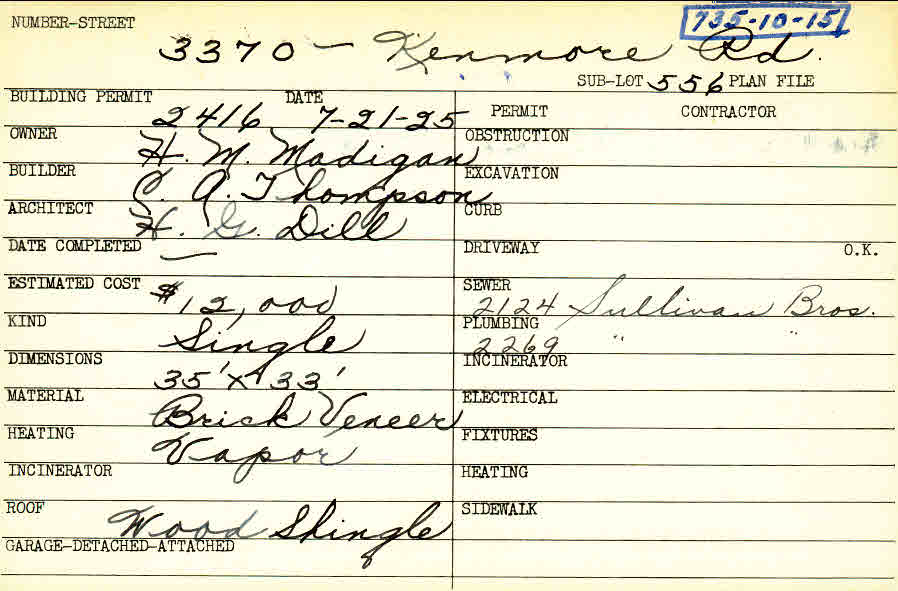 NUMBER-STREET
735-10-15
3370 - Kenmore Rd.
SUB-LOT 556 PLAN FILE
BUILDING PERMIT DATE
2416 7-21-25
OWNER
H. M. Madigan
BUILDER
C. A. Thompson
ARCHITECT
H. G. Dill
DATE COMPLETED
—
ESTIMATED COST
$12,000
KIND
Single
DIMENSIONS
35' x 33'
MATERIAL
Brick Veneer
HEATING
Vapor
INCINERATOR
ROOF
Wood Shingle
GARAGE-DETACHED-ATTACHED
PERMIT CONTRACTOR
OBSTRUCTION
EXCAVATION
CURB
DRIVEWAY O.K.
SEWER
2124 Sullivan Bros.
PLUMBING
2269 " "
INCINERATOR
ELECTRICAL
FIXTURES
HEATING
SIDEWALK